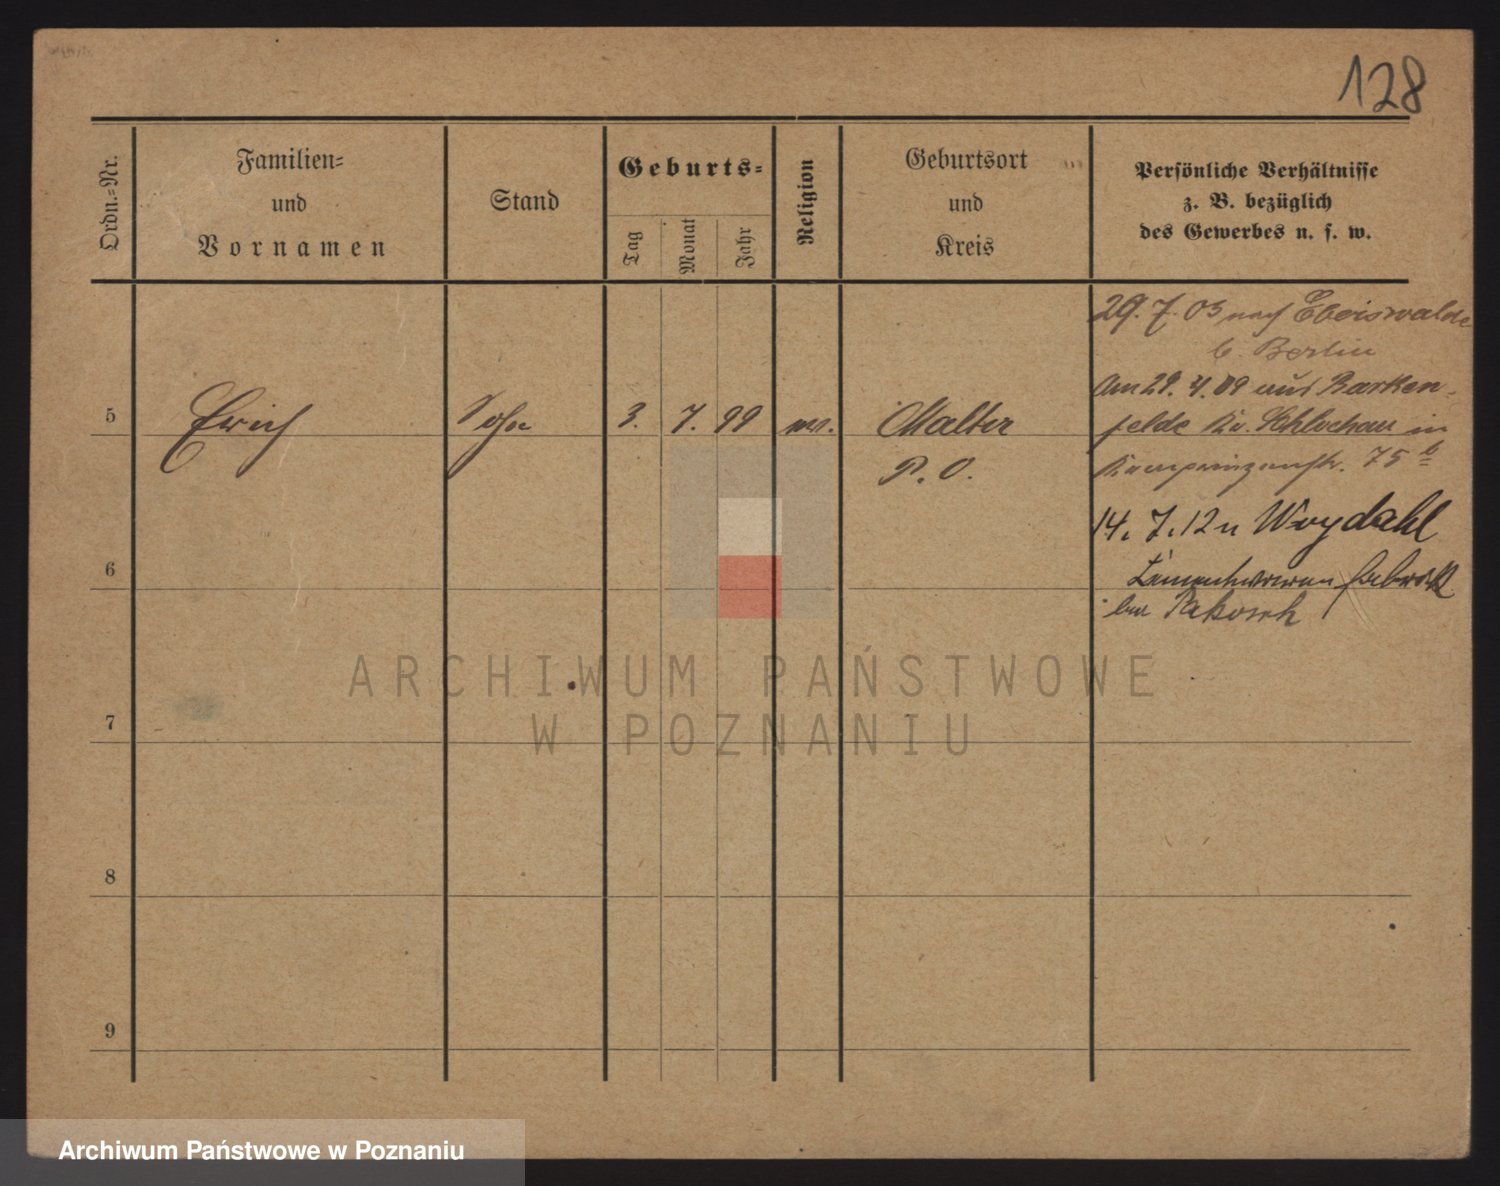 128
Ordn.-Nr.
Familien-
und
Vornamen
Stand
Geburts-
Tag
Monat
Jahr
Religion
Geburtsort
und
Kreis
Persönliche Verhältnisse
z. B. bezüglich
des Gewerbes u. s. w.
29. 7. 03 nach Eberswalde
b. Berlin
Am 29. 4. 09 aus Barken-
5 Erich Sohn 3. 7. 99 ev. Malter
felde Kr. Schlochau in
P. O.
75 b
14. 7. 12 n Woydahl
6
bei Pakosch
ARCHIWUM PAŃSTWOWE
W POZNANIU
7
8
9
Archiwum Państwowe w Poznaniu